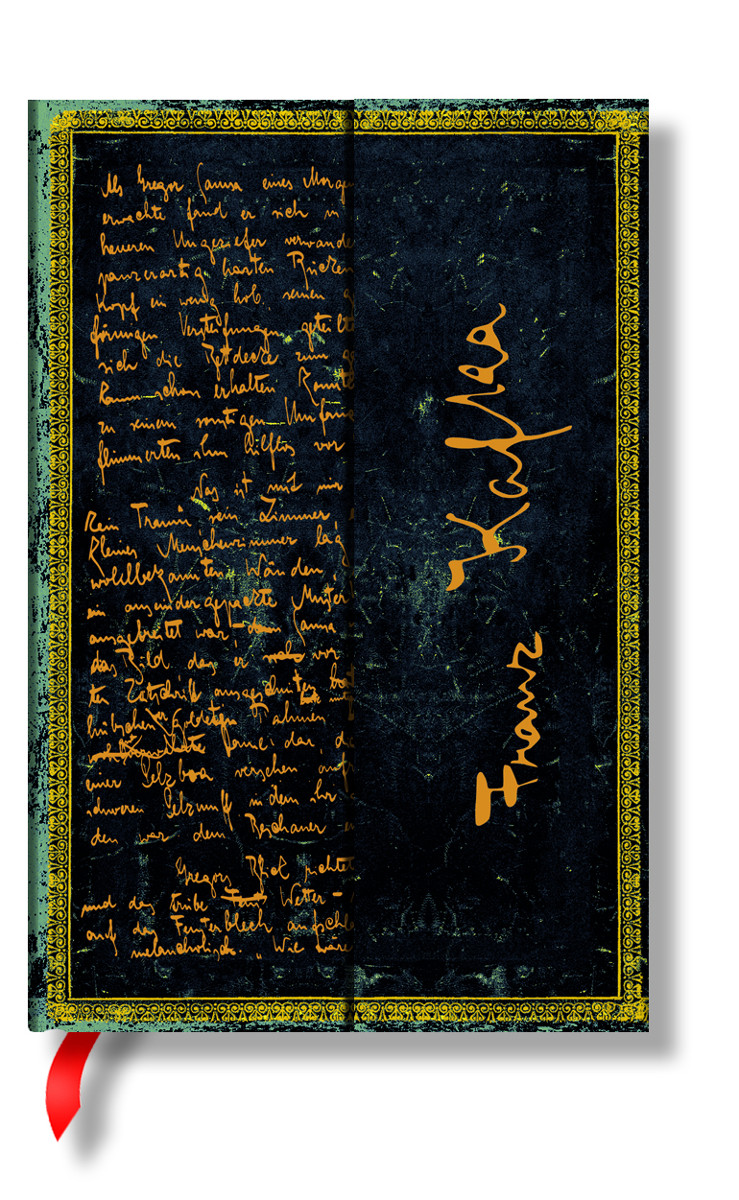 Als Gregor Samsa eines Morge
erwachte fand er sich in
heueren Ungeziefer verwande
panzerartig harten Rücken
Kopf ein wenig hob, seinen g
förmigen Versteifungen geteilt
sich die Bettdecke zum
Raum schon erhalten konnte
zu seinem sonstigen Umfang
flimmerten ihm hilflos vor
Was ist mit mir
Kein Traum sein Zimmer,
kleines Menschenzimmer lag
wohlbekannten Wänden
ein auseinandergepackte Muster
ausgebreitet war – Samsa
das Bild das er vor
ten Zeitschrift ausgeschnitten
hübschen vergoldeten Rahmen
Dame dar, di
einer Pelzboa versehen auf
schweren Pelzmuff in dem ihr
den war dem Beschauer e
Gregors Blick richtet
und das trübe Wetter –
auf das Fensterblech aufschla
melancholisch. „Wie wäre
Franz Kafka